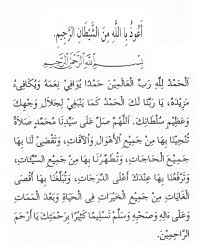 أَعُوذُ بِا اللَّهِ مِنَ الشَّيْطَانِ الرَّجِيمِ.
بِسْمِ اللَّهِ الرَّحْمَنِ الرَّحِيمِ
اَلْحَمْدُ لِلَّهِ رَبِّ الْعَالَمِينَ حَمْدًا يُوَافِي نِعَمَهُ وَيُكَافِىءُ
مَزِيدَهُ، يَا رَبَّنَا لَكَ الْحَمْدُ كَمَا يَنْبَغِي لِجَلَالِ وَجْهِكَ
وَعَظِيمِ سُلْطَانِكَ. اَللَّهُمَّ صَلِّ عَلَى سَيِّدِنَا مُحَمَّدٍ صَلَاةً
تُنْجِينَا بِهَا مِنْ جَمِيعِ الْأَهْوَالِ وَالْآفَاتِ، وَتَقْضِى لَنَا بِهَا
جَمِيعَ الْحَاجَاتِ، وَتُطَهِّرُنَا بِهَا مِنْ جَمِيعِ السَّيِّئَاتِ،
وَتَرْفَعُنَا بِهَا عِنْدَكَ أَعْلَى الدَّرَجَاتِ، وَتُبَلِّغُنَا بِهَا أَقْصَى
الْغَايَاتِ مِنْ جَمِيعِ الْخَيْرَاتِ فِي الْحَيَاةِ وَبَعْدَ الْمَمَاتِ
وَعَلَى ءَالِهِ وَصَحْبِهِ وَسَلِّمْ تَسْلِيمًا كَثِيرًا بِرَحْمَتِكَ يَا أَرْحَمَ
الرَّاحِمِينَ.